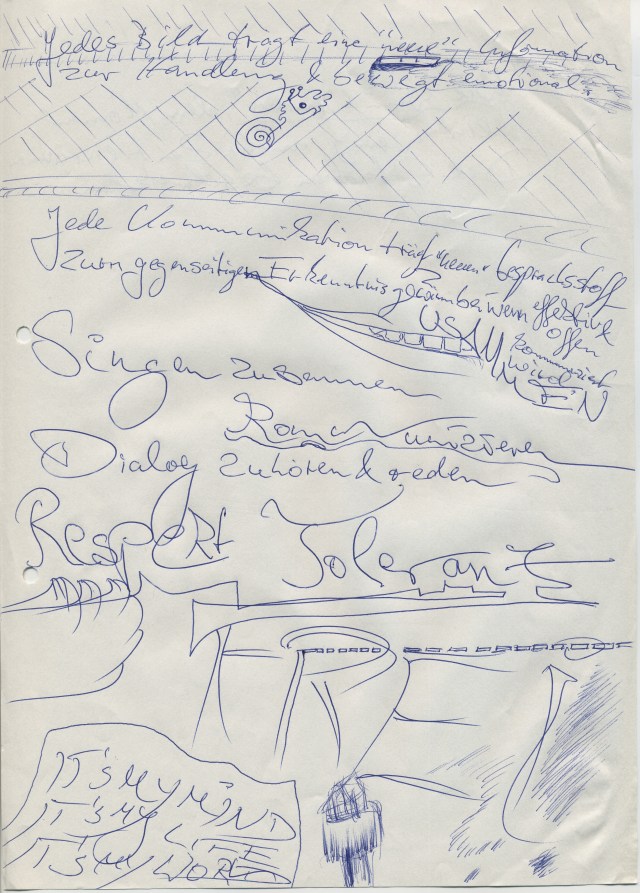 Jedes Bild trägt eine "neue" Information
zur Handlung & bewegt emotional.
Jede Kommunikation trägt "neuen" Gesprächsstoff
zum gegenseitigen Erkenntnis wenn effektiv &
offen
kommuniziert
wird
Singen zusammen
ZUSAMMEN
Kommunizieren
Dialog zuhören & reden
Respekt Toleranz
FREI
IT'S MY MIND
IT'S MY LIFE
IT'S MY WORK